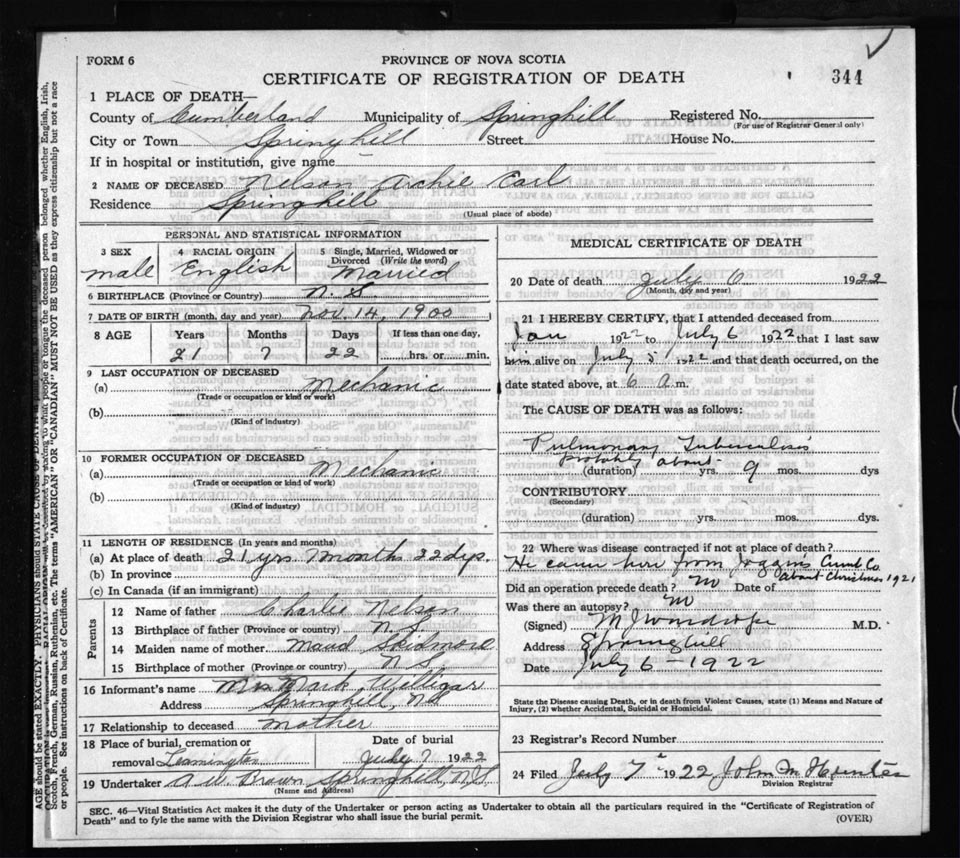 FORM 6
PROVINCE OF NOVA SCOTIA
CERTIFICATE OF REGISTRATION OF DEATH
344
1 PLACE OF DEATH—
County of Cumberland Municipality of Springhill Registered No.
(For use of Registrar General only)
City or Town Springhill Street House No.
If in hospital or institution, give name
2 NAME OF DECEASED Nelson Archie Earl
Residence Springhill
(Usual place of abode)
PERSONAL AND STATISTICAL INFORMATION
3 SEX 4 RACIAL ORIGIN 5 Single, Married, Widowed or Divorced (Write the word)
male English Married
6 BIRTHPLACE (Province or Country) N. S.
7 DATE OF BIRTH (month, day and year) Nov. 14, 1900
8 AGE Years Months Days If less than one day,
21 7 22 hrs. or min.
9 LAST OCCUPATION OF DECEASED
(a) Mechanic
(Trade or occupation or kind of work)
(b)
(Kind of industry)
10 FORMER OCCUPATION OF DECEASED
(a) Mechanic
(Trade or occupation or kind of work)
(b)
(Kind of industry)
11 LENGTH OF RESIDENCE (In years and months)
(a) At place of death 21 yrs 7 months 22 dys.
(b) In province
(c) In Canada (if an immigrant)
Parents
12 Name of father Charlie Nelson
13 Birthplace of father (Province or country) N. S.
14 Maiden name of mother Maud Skidmore
15 Birthplace of mother (Province or country) N. S.
16 Informant's name Mrs Mark Milligan
Address Springhill, NS
17 Relationship to deceased Mother
18 Place of burial, cremation or removal Leamington Date of burial July 7 1922
19 Undertaker A. W. Brown Springhill, N.S.
(Name and Address)
MEDICAL CERTIFICATE OF DEATH
20 Date of death July 6 1922
(Month, day and year)
21 I HEREBY CERTIFY, that I attended deceased from
Jan 1922 to July 6 1922 that I last saw
him alive on July 5 1922 and that death occurred, on the
date stated above, at 6 a.m.
The CAUSE OF DEATH was as follows:
Pulmonary Tuberculosis
probably about
(duration) yrs. 9 mos. dys
CONTRIBUTORY
(Secondary)
(duration) yrs. mos. dys.
22 Where was disease contracted if not at place of death?
He came here from Joggins Cumb Co.
about Christmas 1921
Did an operation precede death? no Date of
Was there an autopsy? no
(Signed) M.D.
Address Springhill
Date July 6 - 1922
State the Disease causing Death, or in death from Violent Causes, state (1) Means and Nature of
Injury, (2) whether Accidental, Suicidal or Homicidal.
23 Registrar's Record Number
24 Filed July 7 1922 John M Hunter
Division Registrar
SEC. 46—Vital Statistics Act makes it the duty of the Undertaker or person acting as Undertaker to obtain all the particulars required in the "Certificate of Registration of
Death" and to fyle the same with the Division Registrar who shall issue the burial permit. (OVER)
AGE should be stated EXACTLY. PHYSICIANS should STATE CAUSE OF DEATH
Scotch, French, German, Russian, Ruthenian, etc. The terms "AMERICAN" OR "CANADIAN" MUST NOT BE USED as they express citizenship but not a race
or people. See instructions on back of Certificate.